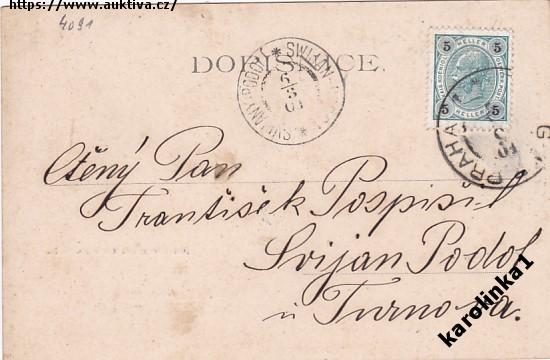 https://www.auktiva.cz/
4091
DOPISNICE.
5 HELLER 5
5 HELLER 5
PRAHA
Ctěný Pan
František Pospíšil
Svijan Podol
u Turnova.
karolinka1